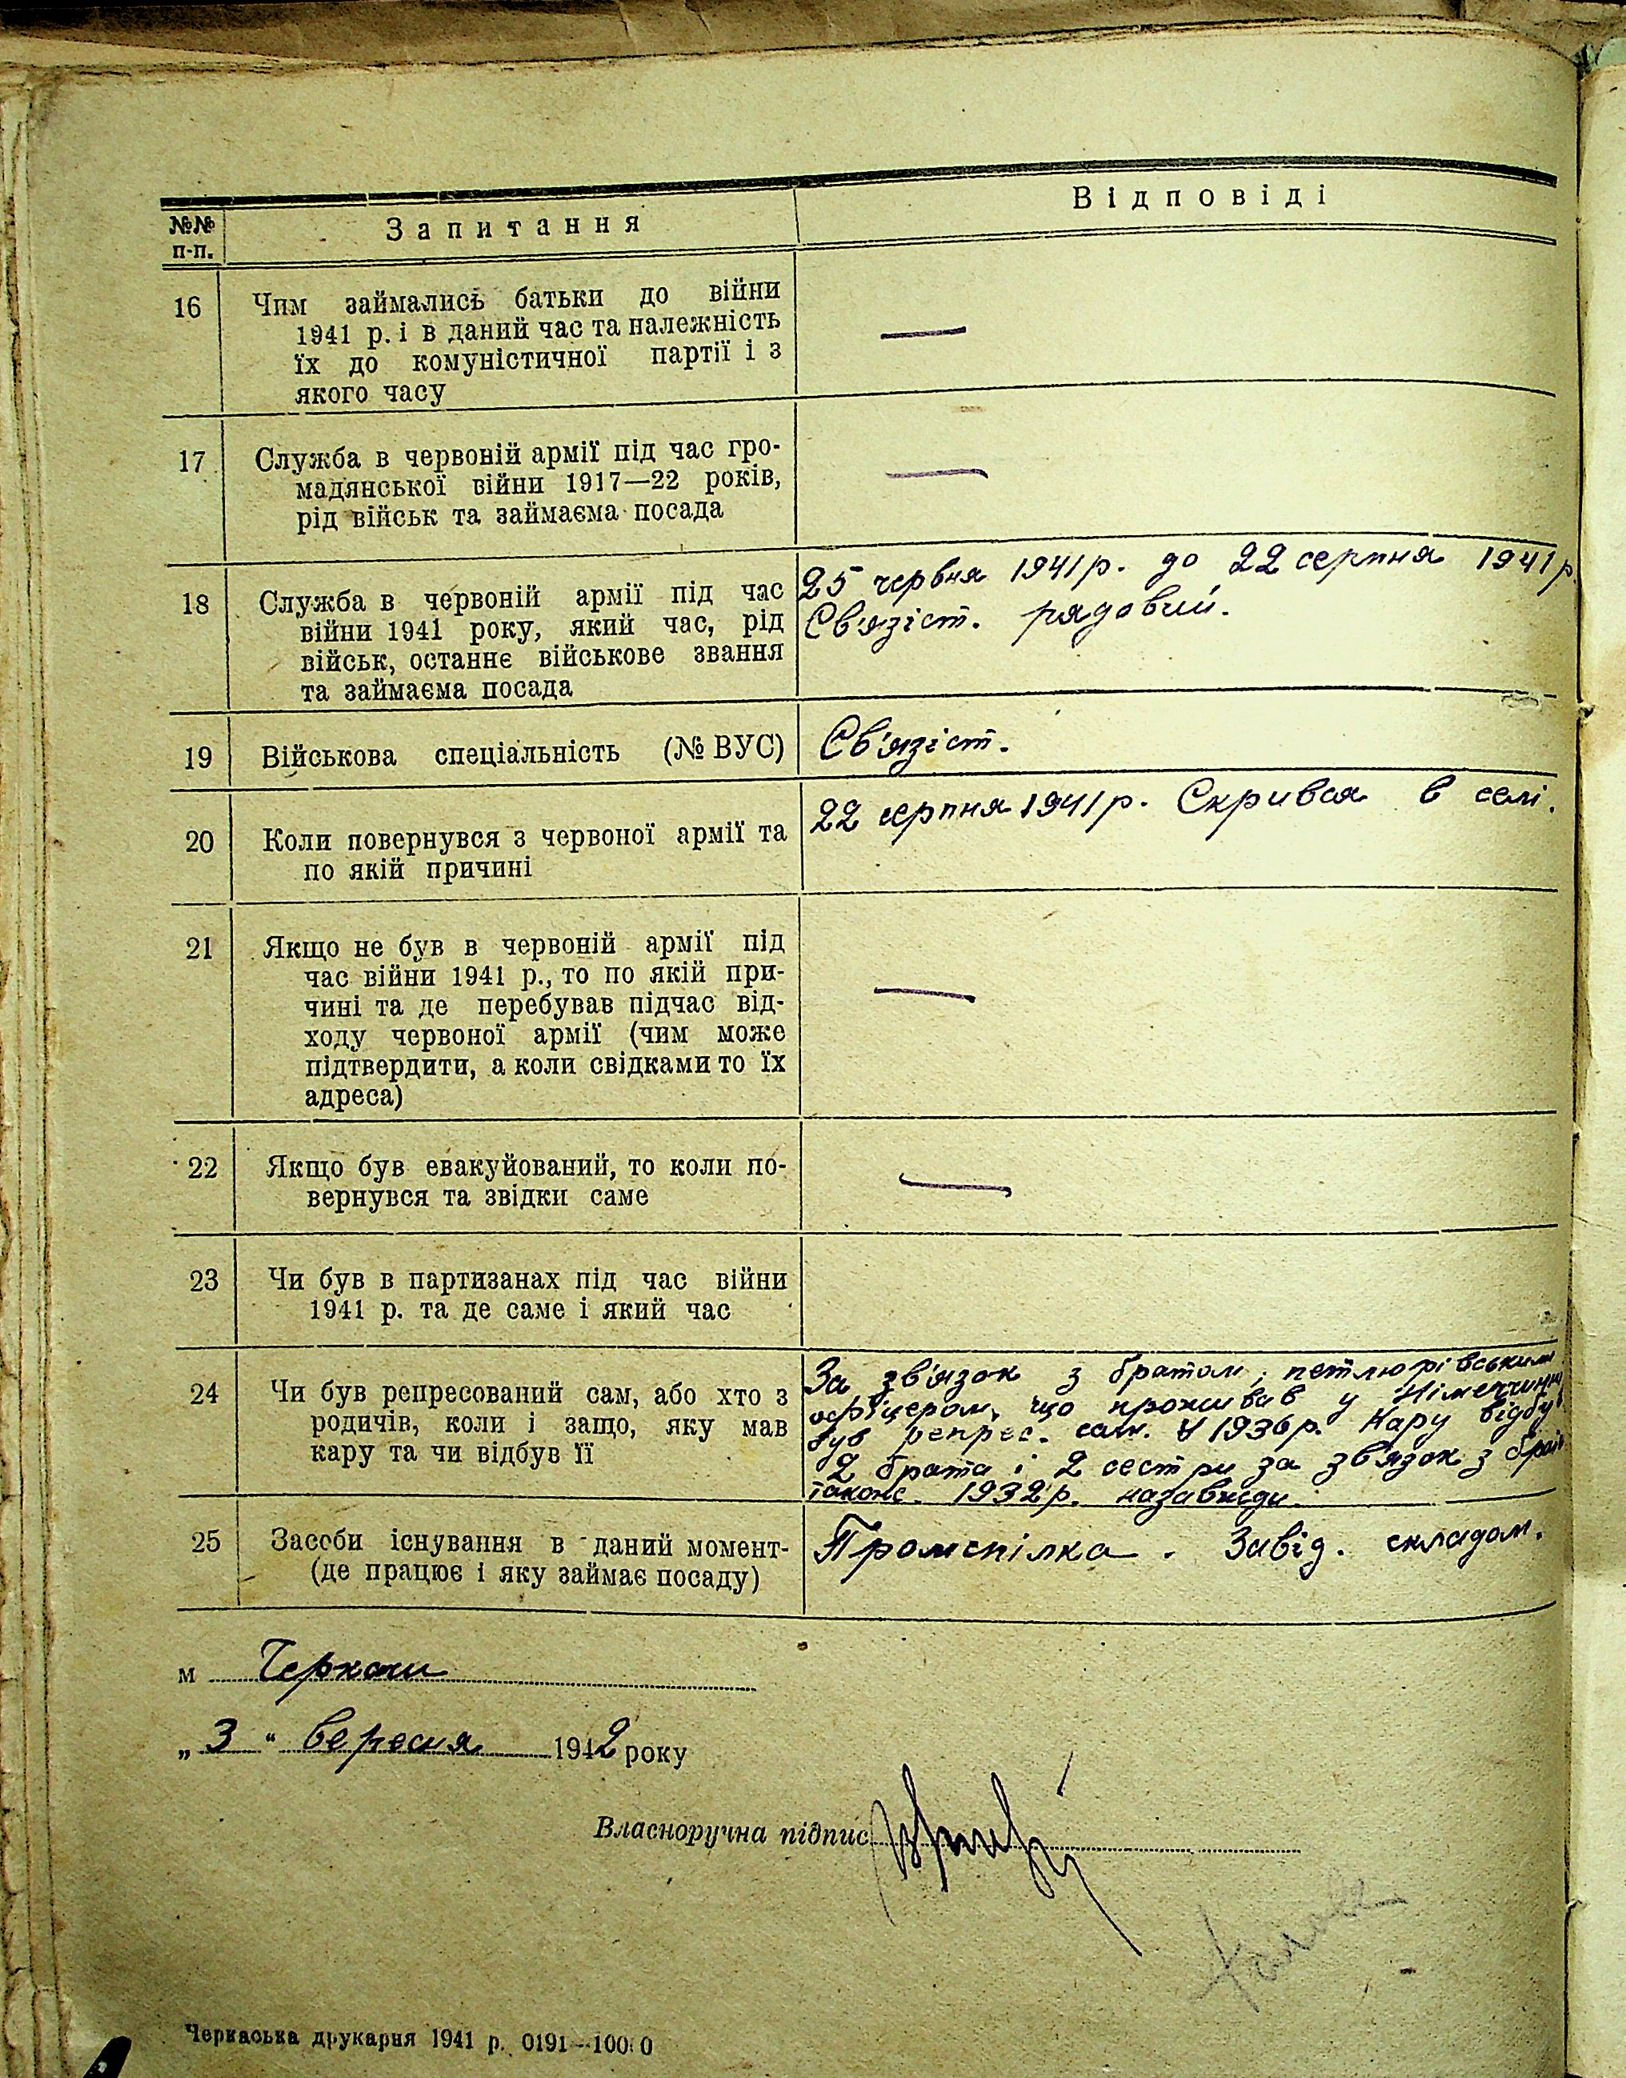 №№ п-п.
Запитання
Відповіді
16
Чим займались батьки до війни
1941 р. і в даний час та належність
їх до комуністичної партії і з
якого часу
—
17
Служба в червоній армії під час гро-
мадянської війни 1917—22 років,
рід військ та займаєма посада
—
18
Служба в червоній армії під час
війни 1941 року, який час, рід
військ, останнє військове звання
та займаєма посада
25 червня 1941 р. до 22 серпня 1941 р.
Св'язіст. рядовий.
19
Військова спеціальність (№ ВУС)
Св'язіст.
20
Коли повернувся з червоної армії та
по якій причині
22 серпня 1941 р. Скрився в селі.
21
Якщо не був в червоній армії під
час війни 1941 р., то по якій при-
чині та де перебував підчас від-
ходу червоної армії (чим може
підтвердити, а коли свідками то їх
адреса)
—
22
Якщо був евакуйований, то коли по-
вернувся та звідки саме
—
23
Чи був в партизанах під час війни
1941 р. та де саме і який час
24
Чи був репресований сам, або хто з
родичів, коли і защо, яку мав
кару та чи відбув її
За зв'язок з братом, петлюрівським
офіцером, що проживав у Німеччині
був репрес. сам. У 1936 р. Кару відбув
2 брата і 2 сестри за зв'язок з братом
також. 1932 р. назавжди.
25
Засоби існування в даний момент-
(де працює і яку займає посаду)
Промспілка. Завід. складом.
м Черкаси
„ 3 “ вересня 1942 року
Власноручна підпис
Черкаська друкарня 1941 р. 0191—100 0